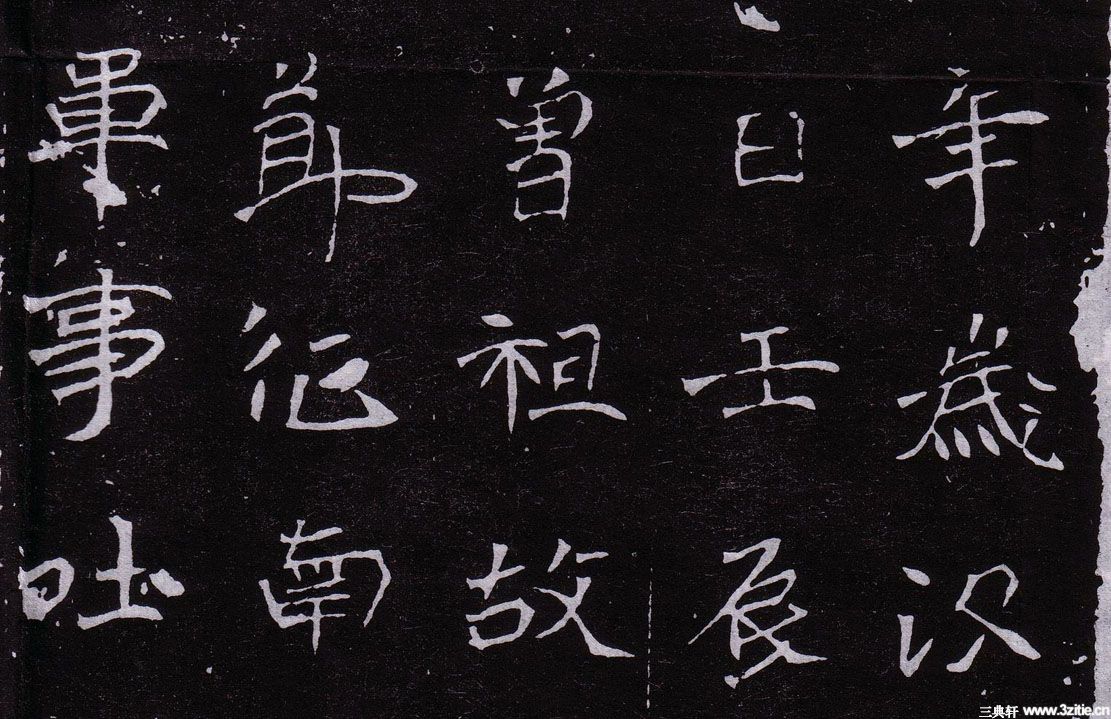 年歲次
日壬辰
曽祖故
征南
軍事吐
三典轩 www.3zitie.cn